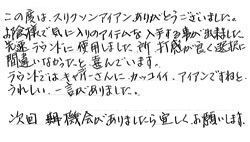 この度は、スリクソンアイアンありがとうございました。
お陰様で気に入りのアイテムを入手する事が出来ました
先週ラウンドに使用しました所 打感が良く選択に
間違いなかったと喜んでいます。
ラウンドではキャディーさんに、カッコイイ、アイアンですねと、
うれしい、一言がありました。
次回 機会がありましたら宜しくお願いします。